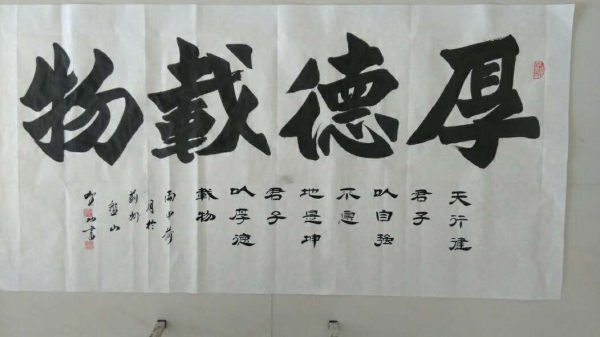 厚德載物
天行健
君子
以自強
不息
地是坤
君子
以厚德
載物
丙申荷
月於
薊州
盤山